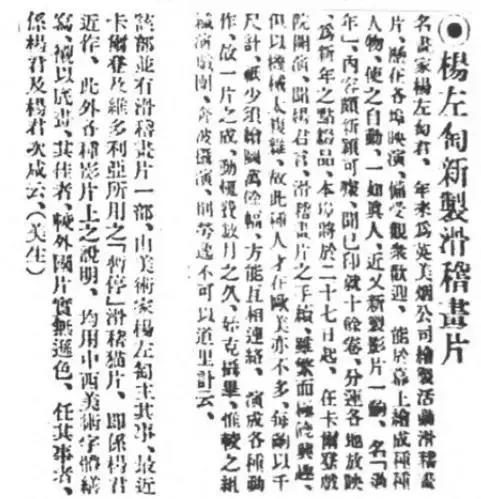 ◉楊左匋新製滑稽畫片
名畫家楊左匋君、年來為英美烟公司繪製活動滑稽畫
片、歷在各埠映演、備受觀衆歡迎、能於幕上繪成種種
人物、使之自動、一如眞人、近又新製影片一齣、名「過
年」、內容頗新頴可噱、聞已印就十餘卷、分運各地放映
、為新年之點粉品、本埠將於二十七日起、在卡爾登戲
院開演、聞楊君言、滑稽畫片之手續、雖繁而極饒興趣、
但以機械太複雜、故此種人才在歐美亦不多、每齣以千
尺計、祇少須繪圖萬餘幅、方能互相連絡、演成各種動
作、故一片之成、動輒費數月之久、始克攝畢、惟較之組
織演劇團、奔波攝演、則勞逸不可以道里計云、
部並有滑稽畫片一部、由美術家楊左匋主其事、最近
卡爾登及維多利亞所用之「暫停」滑稽猫片、即係楊君
近作、此外各種影片上之說明、均用中西美術字體繕
寫、襯以底畫、其佳者、較外國片實無遜色、任其事者、
係楊君及楊君次咸云、（美生）